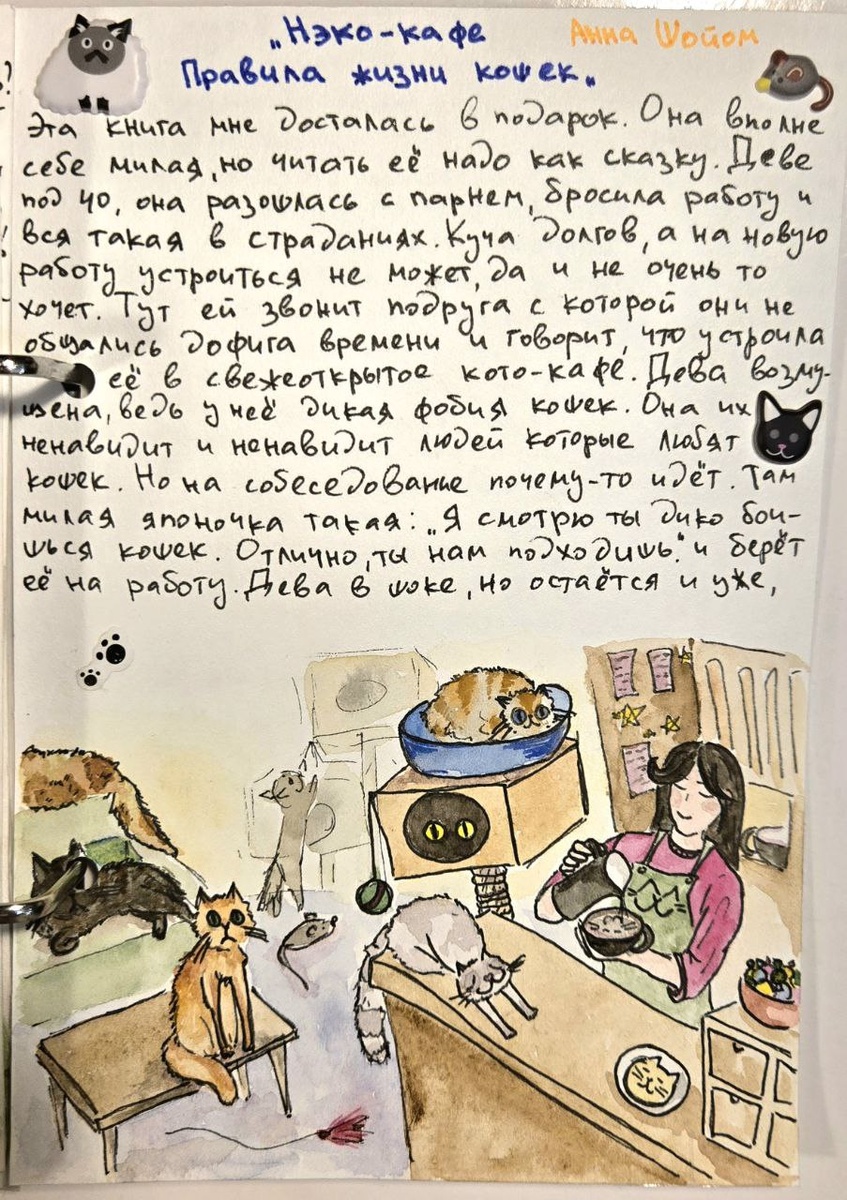 „Нэко-кафе Анна Шойом
Правила жизни кошек„
Эта книга мне досталась в подарок. Она вполне
себе милая, но читать её надо как сказку. Деве
под 40, она разошлась с парнем, бросила работу и
вся такая в страданиях. Куча долгов, а на новую
работу устроиться не может, да и не очень то
хочет. Тут ей звонит подруга с которой они не
общались дофига времени и говорит, что устроила
её в свежеоткрытое кото-кафе. Дева возму-
щена, ведь у неё дикая фобия кошек. Она их
ненавидит и ненавидит людей которые любят
кошек. Но на собеседование почему-то идёт. Там
милая японочка такая: „Я смотрю ты дико бои-
шься кошек. Отлично, ты нам подходишь." и берёт
её на работу. Дева в шоке, но остаётся и уже,